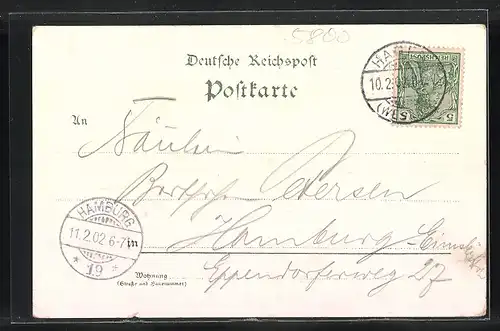 5800
Deutsche Reichspost
Postkarte
HAM
10.2.
(WESTF
REICHSPOST
5 5
An
Fräulein
Petersen
HAMBURG
11.2.02 6-7
* 19 *
in
Hamburg-Eimsbüttel
Wohnung
(Straße und Hausnummer)
Eppendorferweg 27